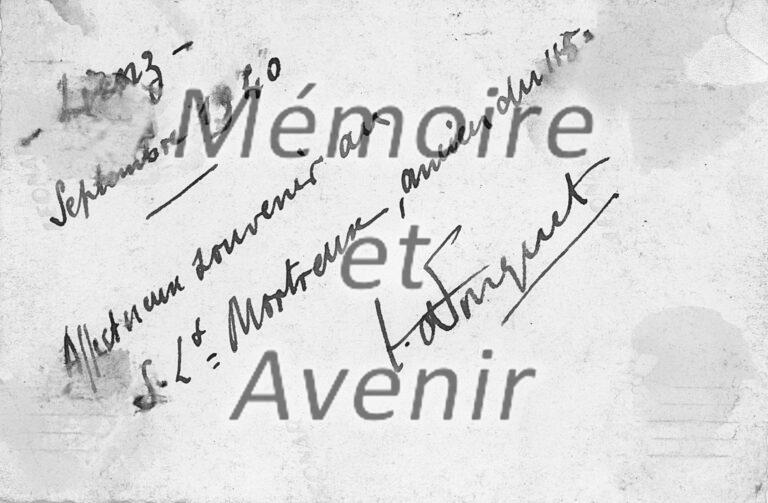 - Lienz -
Septembre 1940
Affectueux souvenir au
S. Lt Mortreux, ancien du 115e
Fouquet
Mémoire
et
Avenir